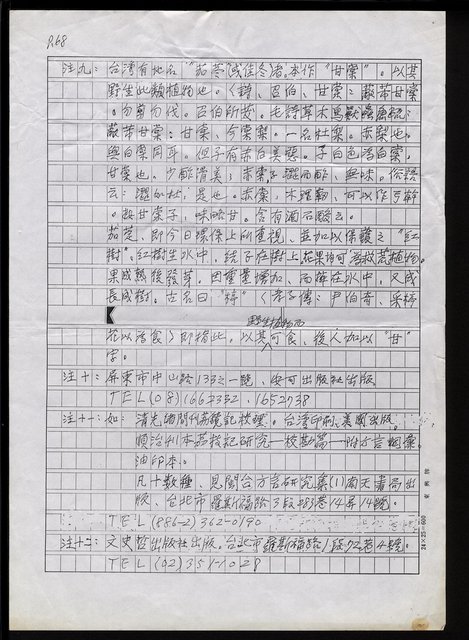 P.68
注九：台湾有地名"茄苳(或佳冬)者。本作"甘棠"。以其
野生此類植物也。〈詩、召伯、甘棠：蔽芾甘棠
。勿翦勿伐。召伯所茇。毛詩草木鳥獸蟲魚疏：
蔽芾甘棠：甘棠、今棠梨。一名杜梨。赤梨也。
與白棠同耳。但子有赤白美惡。子白色為白棠，
甘棠也。少酢滑美；赤棠子澀而酢、無味。俗語
云：澀如杜；是也。赤棠，木理韌、可以作弓幹
。故甘棠子，味略甘。含有酒石酸云。
茄芝，即今日環保上所重視、並加以保護之"紅
樹"。紅樹生水中，結子在樹上。花果均可為救荒植物。
果成熟後發芽。因重量增加、而掉在水中，又成
長成樹。古名曰"楟"〈孝子傳：尹伯奇、采楟
花以為食〉即指此。以其野生植物而可食，後人加以"甘"
字。
注十：屏東市中山路133之一號、安可出版社出版
TEL(08)1662332.1652738
注十一：如：清光緒間刊荔鏡記校理。台湾印刷、美國出版。
順治刊本荔枝記研究一校勘篇一附方言櫊案。
油印本。
凡十數種、見閩台方言研究集(1)南天書局出
版、台北市羅斯福路3段283巷14弄14號。
TEL(886-2)362-0190
注十二：文史哲出版社出版。台北市羅斯福路1段72巷4號。
TEL(02)351-1028
24×25=600